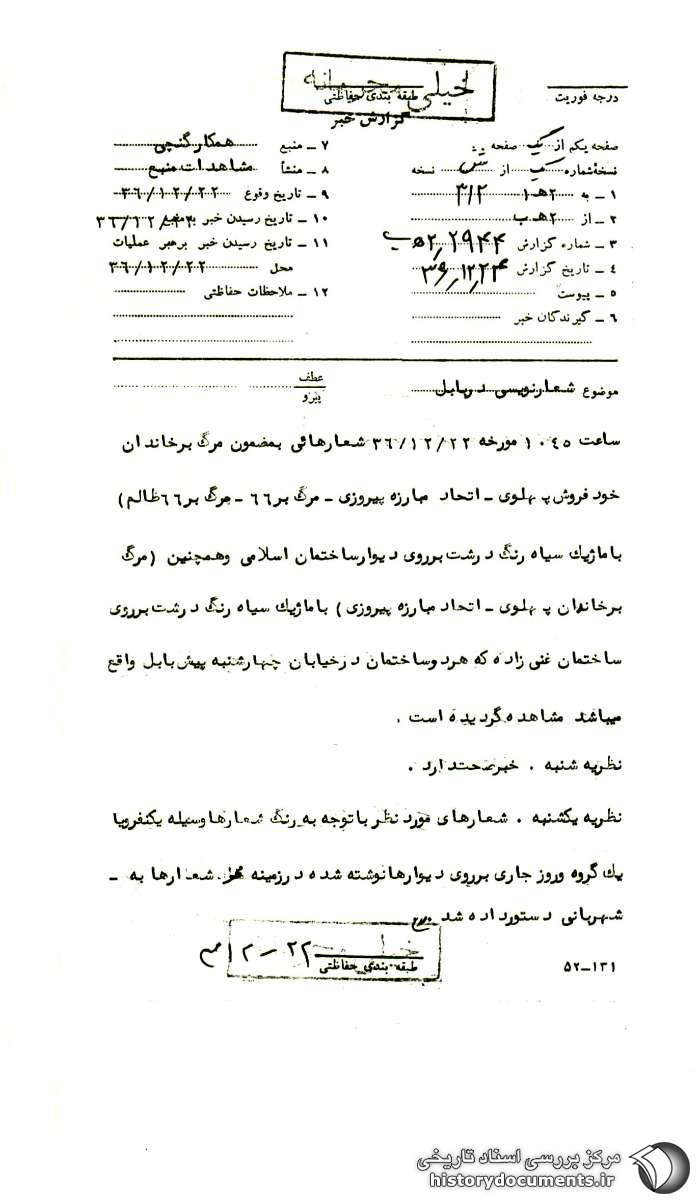 خیلی محرمانه
طبقه بندی حفاظتی
درجه فوریت
گزارش خبر
صفحه یکم از یک صفحه
نسخه شماره یک از شش نسخه
۱ – به ۲هـ۱ ۳۱۲
۲ – از ۲هـ ب
۳ – شماره گزارش ۲۹۴۴
۴ – تاریخ گزارش ۳۶/۱۲/۲۴
۵ – پیوست
۶ – گیرندگان خبر
۷ – منبع همکار گنجی
۸ – منشأ مشاهدات منبع
۹ – تاریخ وقوع ۳۶/۱۲/۲۲
۱۰ – تاریخ رسیدن خبر بمنبع
۱۱ – تاریخ رسیدن خبر برهبر عملیات
محل ۳۶/۱۲/۲۲
۱۲ – ملاحظات حفاظتی
موضوع شعارنویسی در بابل
عطف
پیرو
ساعت ۱۰۴۵ مورخه ۳۶/۱۲/۲۲ شعارهائی بمضمون مرگ برخاندان
خود فروش پهلوی – اتحاد مبارزه پیروزی – مرگ بر ۶۶ – مرگ بر ۶۶ ظالم)
با ماژیک سیاه رنگ درشت برروی دیوار ساختمان اسلامی وهمچنین (مرگ
برخاندان پهلوی – اتحاد مبارزه پیروزی) با ماژیک سیاه رنگ درشت برروی
ساختمان غنی زاده که هر دو ساختمان در خیابان چهارشنبه پیش بابل واقع
میباشد مشاهده گردیده است .
نظریه شنبه . خبر صحت دارد .
نظریه یکشنبه . شعارهای مورد نظر با توجه به رنگ شعارها وسیله یکنفر ویا
یک گروه وروز جاری برروی دیوارها نوشته شده در زمینه شعارها به –
شهربانی دستور داده شد
طبقه بندی حفاظتی
۵۲–۱۳۱
مرکز بررسی اسناد تاریخی
historydocuments.ir